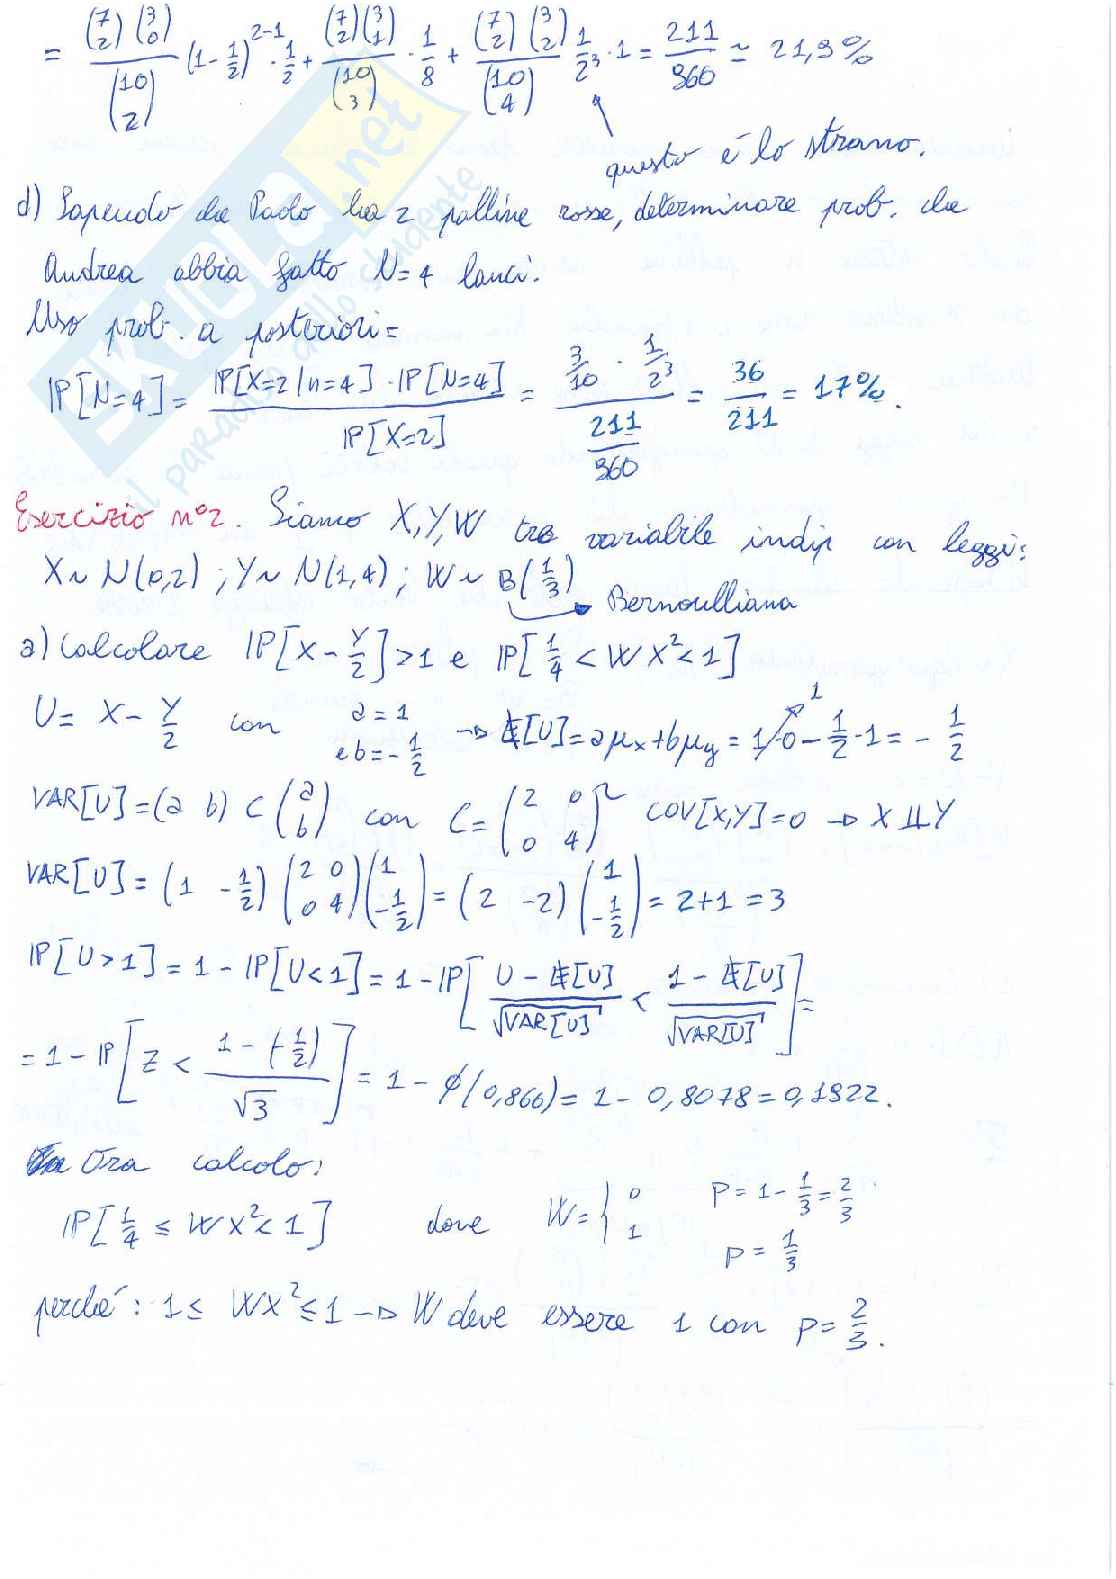 = \frac{\binom{7}{2}\binom{3}{0}}{\binom{10}{2}} (1-\frac{1}{2})^{2-1} \cdot \frac{1}{2} + \frac{\binom{7}{2}\binom{3}{1}}{\binom{10}{3}} \cdot \frac{1}{8} + \frac{\binom{7}{2}\binom{3}{2}}{\binom{10}{4}} \frac{1}{2^3} \cdot 1 = \frac{211}{960} ≃ 21,9%
questo è lo strano.
d) Sapendo che Paolo ha 2 palline rosse, determinare prob. che
Andrea abbia fatto N=4 lanci.
Uso prob. a posteriori =
IP[N=4] = \frac{IP[X=2|n=4] \cdot IP[N=4]}{IP[X=2]} = \frac{\frac{3}{10} \cdot \frac{1}{2^3}}{\frac{211}{960}} = \frac{36}{211} = 17%.
Esercizio n°2. Siano X,Y,W tre variabile indip con leggi:
X~N(0,2) ; Y~N(1,4) ; W~B(\frac{1}{3}) → Bernoulliana
a) Calcolare IP[X-\frac{Y}{2}]>1 e IP[\frac{1}{4} < WX^2 < 1]
U = X-\frac{Y}{2} con a=1 e b=-\frac{1}{2} → E[U]=aμ_x+bμ_y = 1·0-\frac{1}{2}·1 = -\frac{1}{2}
VAR[U]=(a b) C \binom{a}{b} con C=\begin{pmatrix} 2 & 0 \\ 0 & 4 \end{pmatrix} COV[X,Y]=0 → X⫫Y
VAR[U] = (1 -\frac{1}{2}) \begin{pmatrix} 2 & 0 \\ 0 & 4 \end{pmatrix} \begin{pmatrix} 1 \\ -\frac{1}{2} \end{pmatrix} = (2 -2) \begin{pmatrix} 1 \\ -\frac{1}{2} \end{pmatrix} = 2+1 = 3
IP[U>1] = 1 - IP[U<1] = 1 - IP[\frac{U-E[U]}{\sqrt{VAR[U]}} < \frac{1-E[U]}{\sqrt{VAR[U]}}] =
= 1 - IP[Z < \frac{1-(-\frac{1}{2})}{\sqrt{3}}] = 1 - ϕ(0,866) = 1 - 0,8078 = 0,1922.
Ora calcolo:
IP[\frac{1}{4} ≤ WX^2 < 1] dove W = { 0 p = 1-\frac{1}{3} = \frac{2}{3}
1 p = \frac{1}{3}
perché: 1 ≤ WX^2 ≤ 1 → W deve essere 1 con p = \frac{2}{3}.
SKUOLA.net
il paradiso dello studente